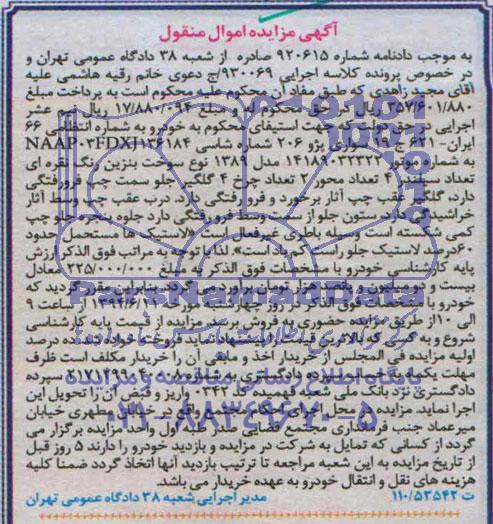 آگهی مزایده اموال منقول
به موجب دادنامه شماره ۹۲۰۶۱۵ صادره از شعبه ۳۸ دادگاه عمومی تهران و
در خصوص پرونده کلاسه اجرایی ۹۳۰۰۶۹/ج دعوی خانم رقیه هاشمی علیه
آقای مجید زاهدی که طبق مفاد آن محکوم علیه محکوم است به پرداخت مبلغ
۳۵۷/۶۰۱/۸۸۰ ریال در حق محکوم له و مبلغ ۱۷/۸۸۰/۰۹۴ ریال نیم عشر
اجرایی در حق دولت که جهت استیفای محکوم به خودرو به شماره انتظامی ۶۶
ایران- ۶۲۱ ج ۱۹ سواری پژو ۲۰۶ شماره شاسی NAAP۰۳FDXJ۱۳۶۱۸۴
به شماره موتور ۱۴۱۸۹۰۳۲۳۲۲ مدل ۱۳۸۹ نوع سوخت بنزین رنگ نقره ای
تعداد سیلندر ۴ تعداد محور ۲ تعداد چرخ ۴ گلگیر جلو سمت چپ فرورفتگی
دارد، گلگیر عقب چپ آثار برخورد و فرورفتگی دارد. درب عقب چپ وسط آثار
خراشیدگی دارد، ستون جلو از سمت وسط فرورفتگی دارد جلوه پنجره جلو چپ
کمی شکسته است وسیله باطری غیرفعال است «لاستیک ها مستعمل حدود
۶۰درصد لاستیک جلو راست کم باد است». لذا با توجه به مراتب فوق الذکر ارزش
پایه کارشناسی خودرو با مشخصات فوق الذکر به مبلغ ۲۲۵/۰۰۰/۰۰۰ معادل
بیست و دو میلیون و پانصد هزار تومان برآورد می گردد. بنابراین مقرر گردید که
خودرو با مشخصات فوق الذکر در روز چهارشنبه مورخه ۱۳۹۴/۶/۱۱ از ساعت ۹
الی ۱۰از طریق مزایده حضوری به فروش برسد. مزایده از قیمت پایه کارشناسی
شروع و به کسی که بالاترین قیمت را پیشنهاد نماید فروخته خواهد شد. ده درصد
اولیه مزایده فی المجلس از خریدار اخذ و مابقی آن را خریدار مکلف است ظرف
مهلت یکماه به حساب سپرده دادگستری به شماره ۲۱۷۱۲۹۹۰۴۰۰۸ سپرده
دادگستری نزد بانک ملی شعبه فهمیده کد ۰۳۴۲ واریز و فیض آن را تحویل این
اجرا نماید. مزایده در محل اجرای احکام مجتمع واقع در خیابان مطهری خیابان
میرعماد جنب فرمانداری مجتمع قضایی صدر طبقه اول واحد مزایده برگزار می
گردد از کسانی که تمایل به شرکت در مزایده و بازدید خودرو را دارند ۵ روز قبل
از تاریخ مزایده به این شعبه مراجعه تا ترتیب بازدید آنها اتخاذ گردد ضمنا کلیه
هزینه های نقل و انتقال خودرو به عهده خریدار می باشد.
ت ۱۱۰/۵۳۵۴۲ مدیر اجرایی شعبه ۳۸ دادگاه عمومی تهران
ParsNamadData
پایگاه اطلاع رسانی مناقصه و مزایده
۰۲۱-۸۸۳۴۹۶۷۰-۵